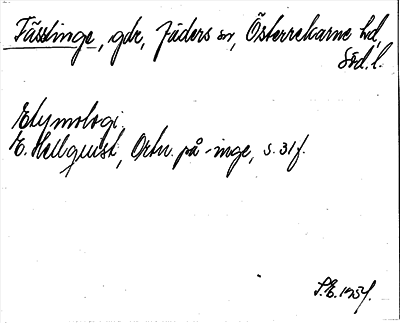 Fässlinge, gdr, Jäders sn, Österrekarne hd,
Söd. l.
Etymologi.
E. Hellquist, Ortn. på -inge, s. 31 f.
S.E. 1954.